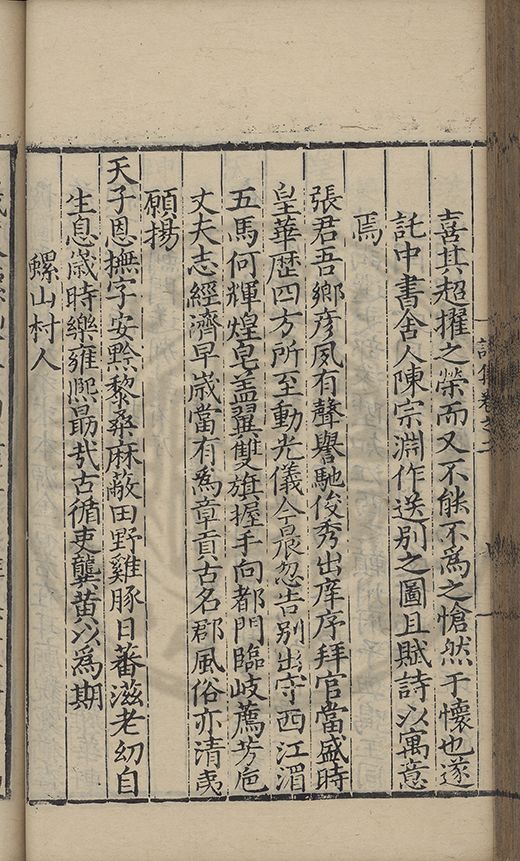 喜其超擢之榮而又不能不為之愴然于懷也遂
託中書舍人陳宗淵作送别之圖且賦詩以寓意
焉
張君吾鄉彦夙有聲譽馳俊秀出庠序拜官當盛時
皇華歷四方所至動光儀今晨忽告别出守西江湄
五馬何輝煌皂盖翼雙旗握手向都門臨岐薦芳巵
丈夫志經濟早嵗當有為章貢古名郡風俗亦清夷
願揚
天子恩撫字安黔黎桑麻蔽田野雞豚日蕃滋老幼自
生息嵗時樂雍熈勗哉古循吏龔黄以為期
螺山村人
詩集卷之二